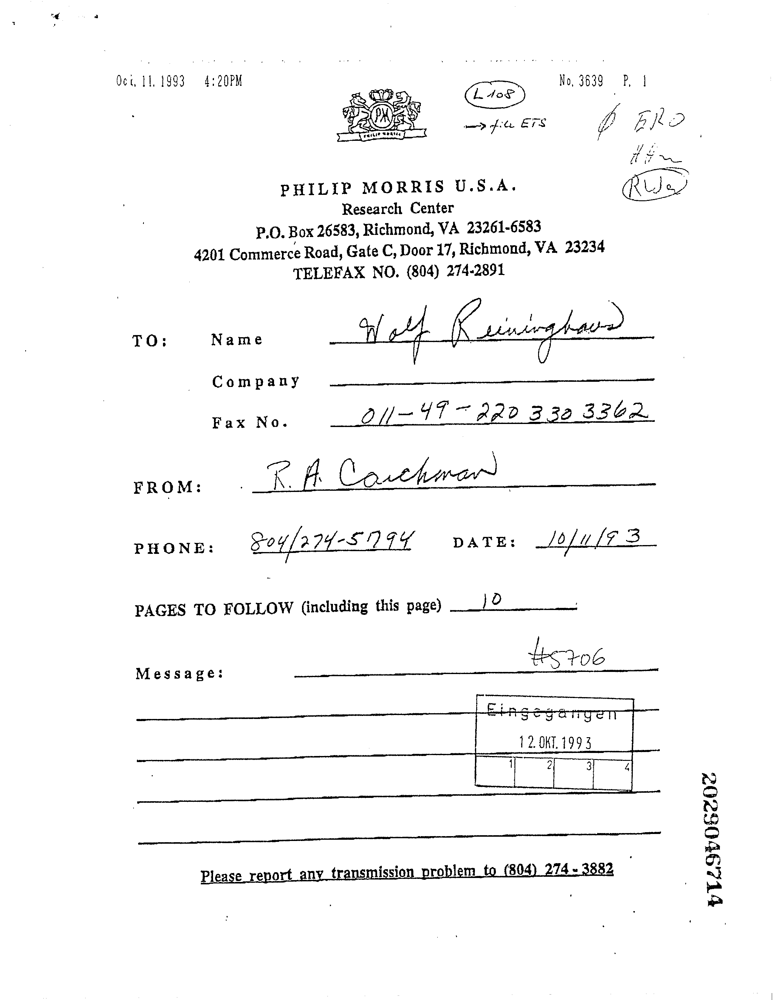 Oct. 11. 1993 4:20PM No. 3639 P. 1
L 108
→ file ETS
ERO
PM
PHILIP MORRIS
PHILIP MORRIS U.S.A.
Research Center
P.O. Box 26583, Richmond, VA 23261-6583
4201 Commerce Road, Gate C, Door 17, Richmond, VA 23234
TELEFAX NO. (804) 274-2891
TO: Name Wolf Reininghaus
Company
Fax No. 011-49-220 330 3362
FROM: R. A. Carchman
PHONE: 804/274-5794 DATE: 10/11/93
PAGES TO FOLLOW (including this page) 10
#5706
Message:
Eingegangen
12. OKT. 1993
1 2 3 4
Please report any transmission problem to (804) 274-3882
2029046714